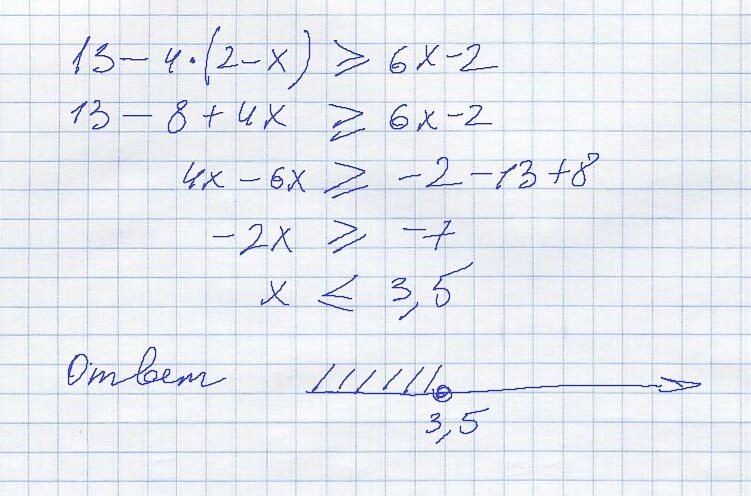 13 - 4·(2 - x) ⩾ 6x - 2
13 - 8 + 4x ⩾ 6x - 2
4x - 6x ⩾ -2 - 13 + 8
-2x ⩾ -7
x ⩽ 3,5
Ответ
3,5